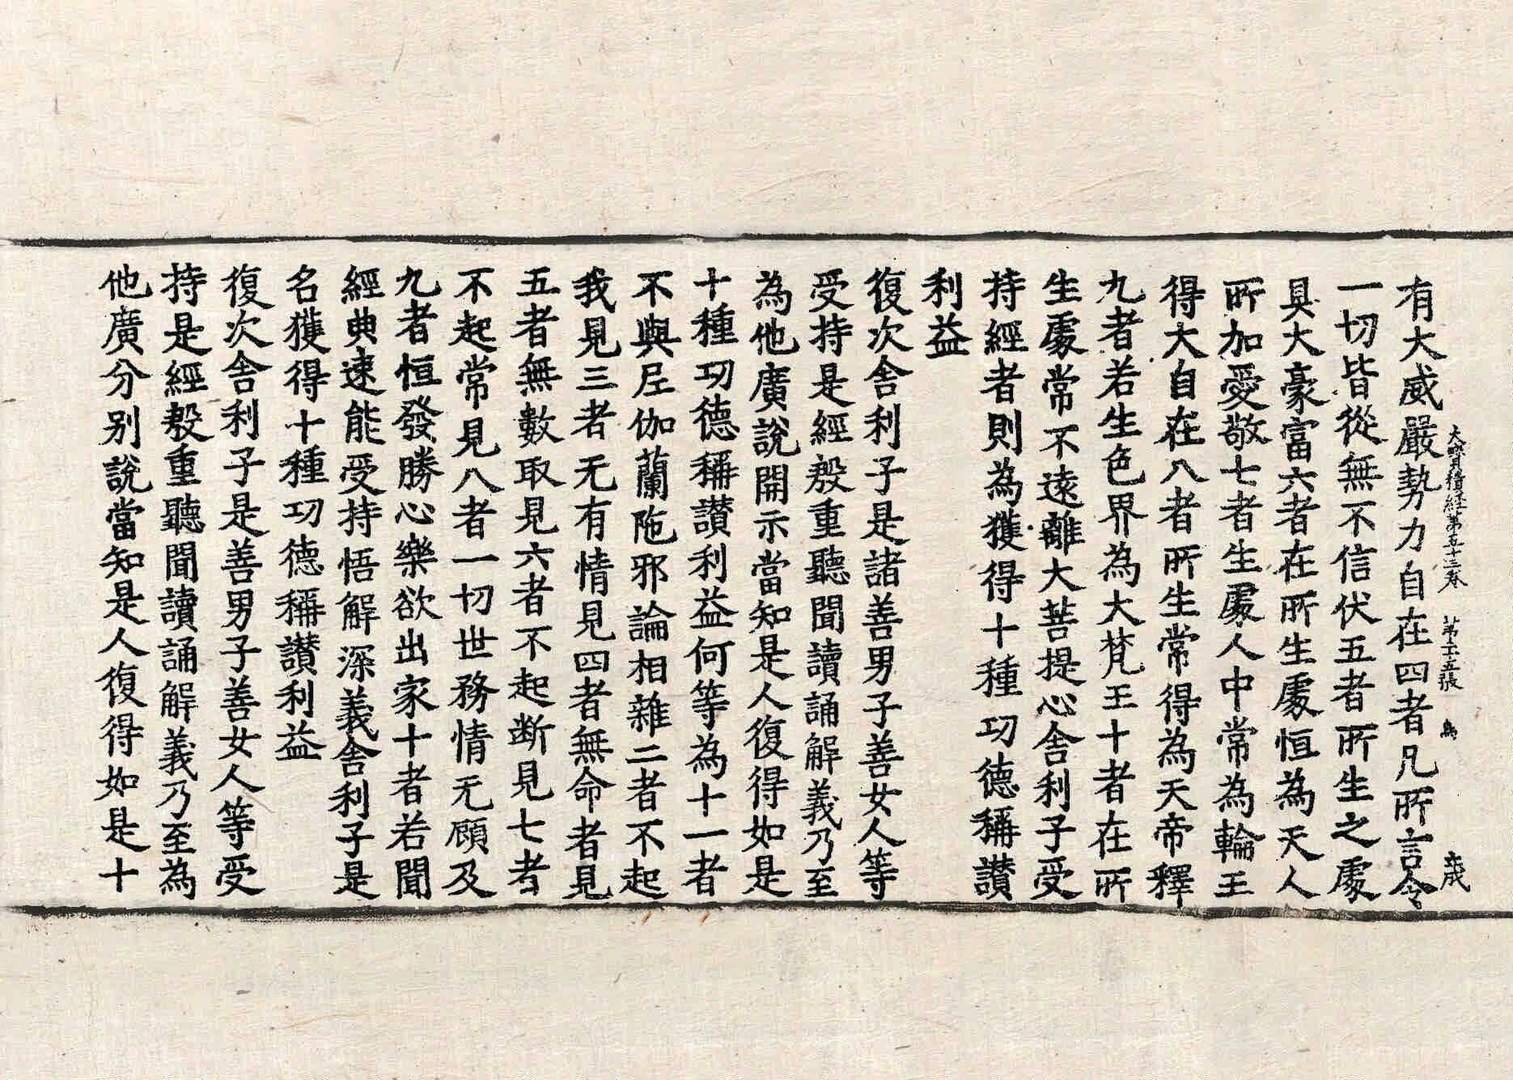 大寶積經第五十三卷
有大威嚴勢力自在四者凡所言令
一切皆從無不信伏五者所生之處
具大豪富六者在所生處恒為天人
所加愛敬七者生處人中常為輪王
得大自在八者所生常得為天帝釋
九者若生色界為大梵王十者在所
生處常不遠離大菩提心舍利子受
持經者則為獲得十種功德稱讃
利益
復次舍利子是諸善男子善女人等
受持是經慇重聽聞讀誦解義乃至
為他廣說開示當知是人復得如是
十種功德稱讃利益何等為十一者
不與尼伽蘭陁邪論相雜二者不起
我見三者无有情見四者無命者見
五者無數取見六者不起断見七者
不起常見八者一切世務情无顧及
九者恒發勝心樂欲出家十者若聞
經典速能受持悟解深義舍利子是
名獲得十種功德稱讃利益
復次舍利子是善男子善女人等受
持是經慇重聽聞讀誦解義乃至為
他廣分别說當知是人復得如是十